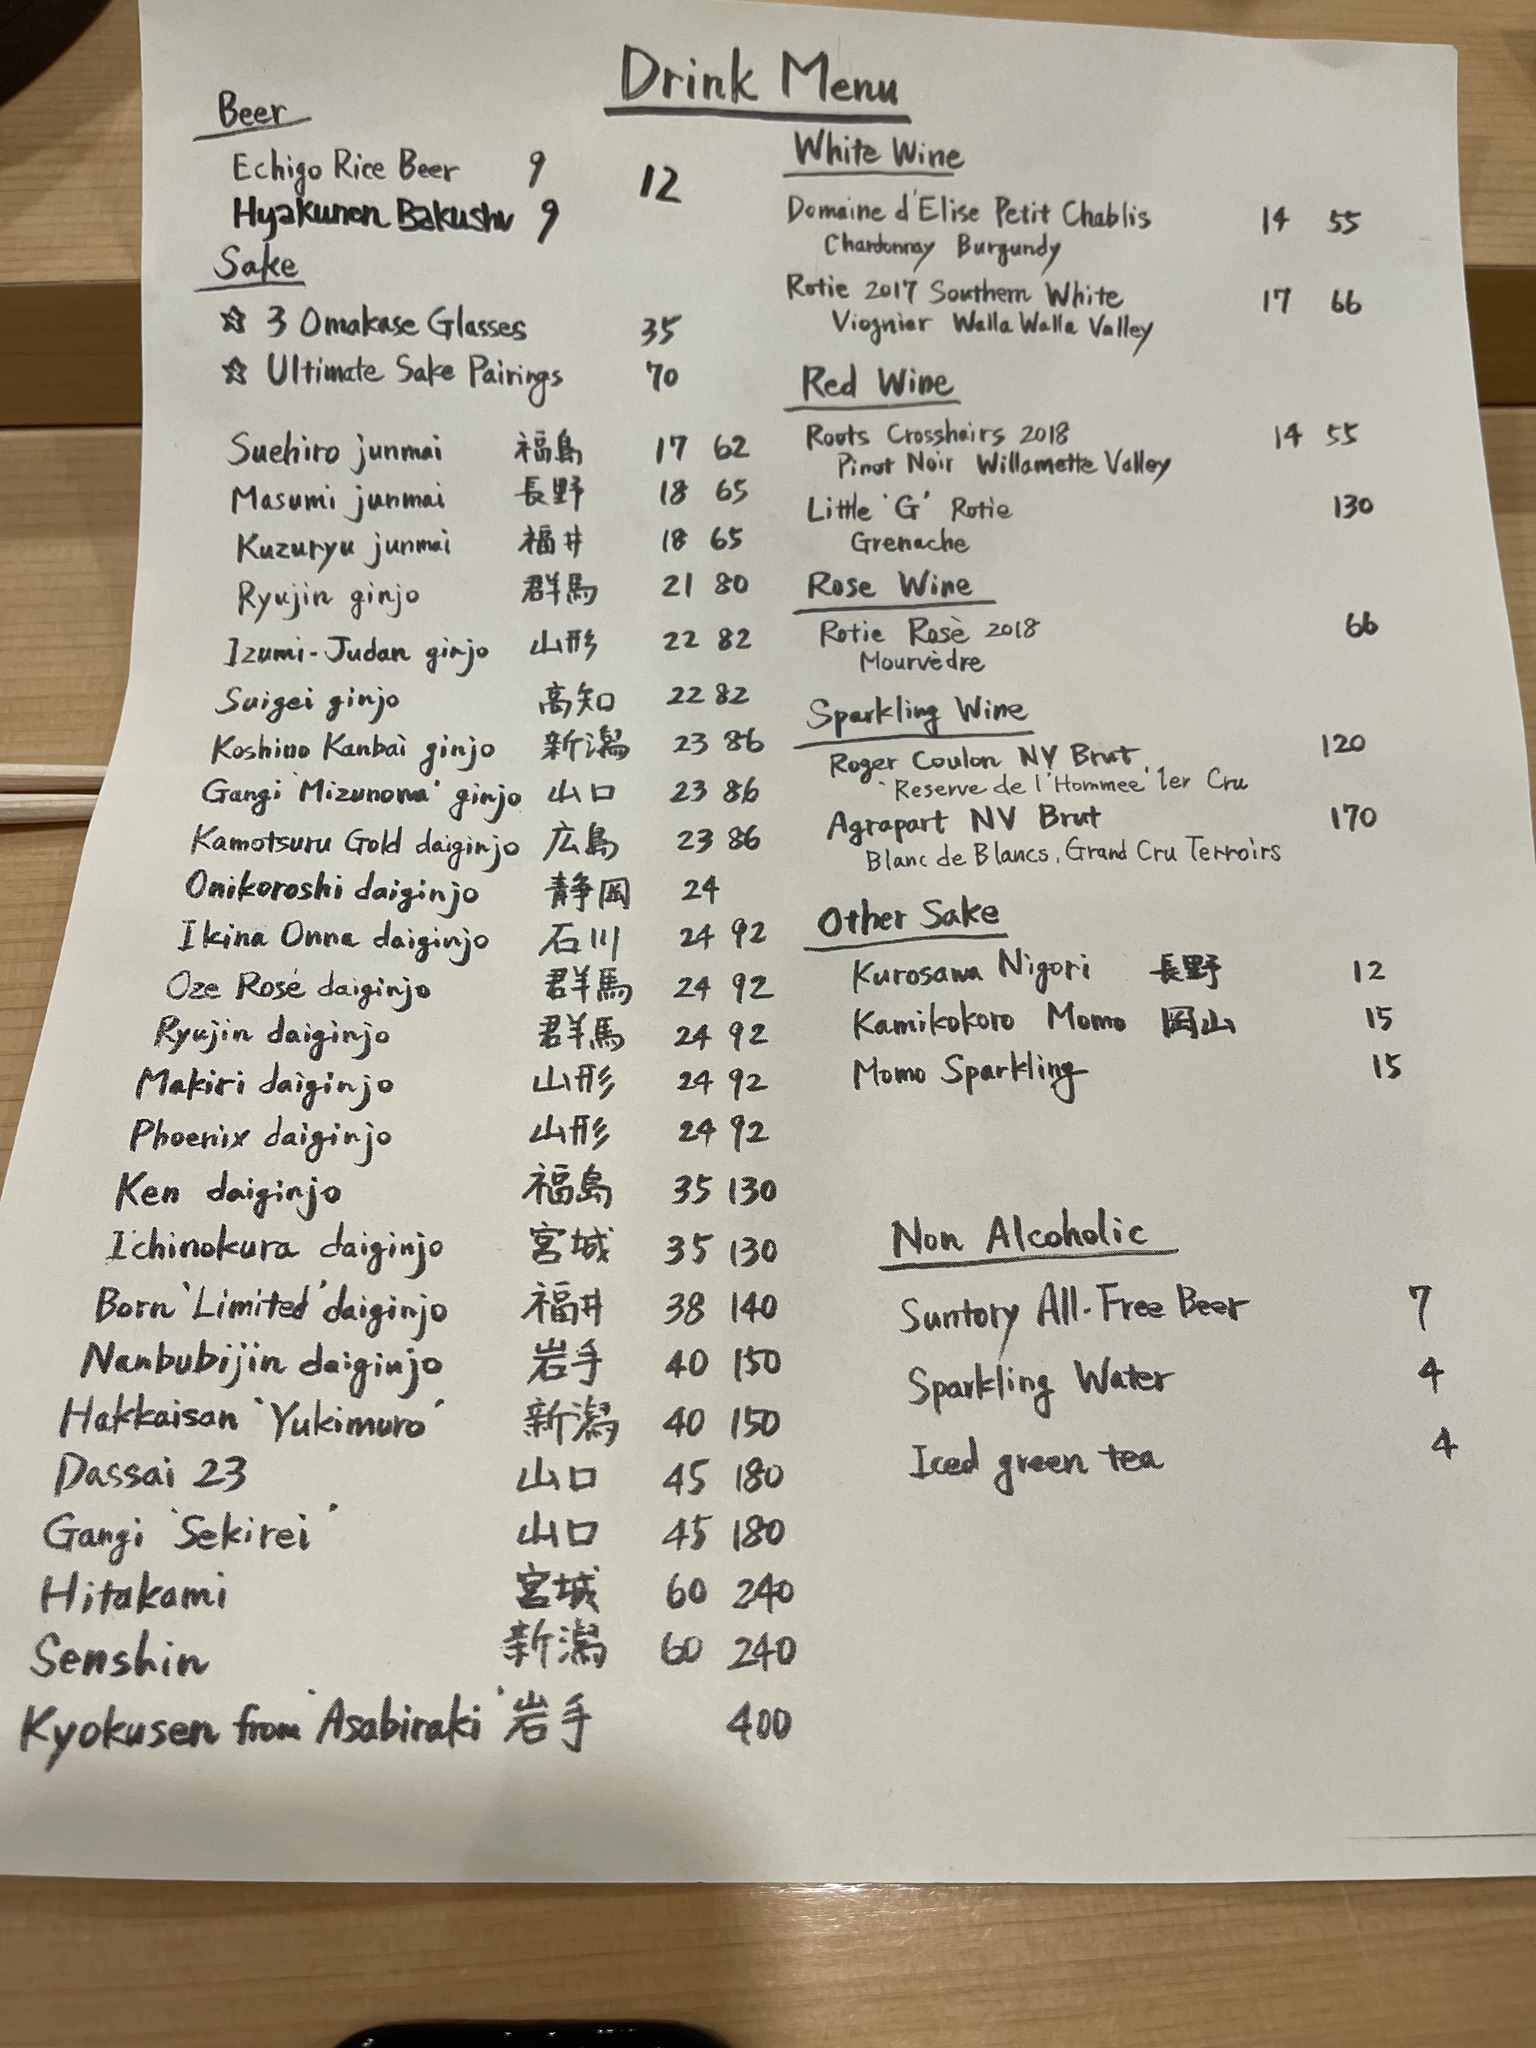 Drink Menu
Beer
Echigo Rice Beer 9 12
Hyakunen Bakushu 9
Sake
☆ 3 Omakase Glasses 35
☆ Ultimate Sake Pairings 70
Suehiro junmai 福島 17 62
Masumi junmai 長野 18 65
Kuzuryu junmai 福井 18 65
Ryujin ginjo 群馬 21 80
Izumi-Judan ginjo 山形 22 82
Suigei ginjo 高知 22 82
Koshino Kanbai ginjo 新潟 23 86
Gangi 'Mizunowa' ginjo 山口 23 86
Kamotsuru Gold daiginjo 広島 23 86
Onikoroshi daiginjo 静岡 24
Ikina Onna daiginjo 石川 24 92
Oze Rosé daiginjo 群馬 24 92
Ryujin daiginjo 群馬 24 92
Makiri daiginjo 山形 24 92
Phoenix daiginjo 山形 24 92
Ken daiginjo 福島 35 130
Ichinokura daiginjo 宮城 35 130
Born 'Limited' daiginjo 福井 38 140
Nanbubijin daiginjo 岩手 40 150
Hakkaisan 'Yukimuro' 新潟 40 150
Dassai 23 山口 45 180
Gangi 'Sekirei' 山口 45 180
Hitakami 宮城 60 240
Senshin 新潟 60 240
Kyokusen from 'Asabiraki' 岩手 400
White Wine
Domaine d'Elise Petit Chablis 14 55
Chardonnay Burgundy
Rotie 2017 Southern White 17 66
Viognier Walla Walla Valley
Red Wine
Roots Crosshairs 2018 14 55
Pinot Noir Willamette Valley
Little 'G' Rotie 130
Grenache
Rose Wine
Rotie Rosè 2018 66
Mourvèdre
Sparkling Wine
Roger Coulon NV Brut 120
'Reserve de l'Hommee' 1er Cru
Agrapart NV Brut 170
Blanc de Blancs, Grand Cru Terroirs
Other Sake
Kurosawa Nigori 長野 12
Kamikokoro Momo 岡山 15
Momo Sparkling 15
Non Alcoholic
Suntory All-Free Beer 7
Sparkling Water 4
Iced green tea 4